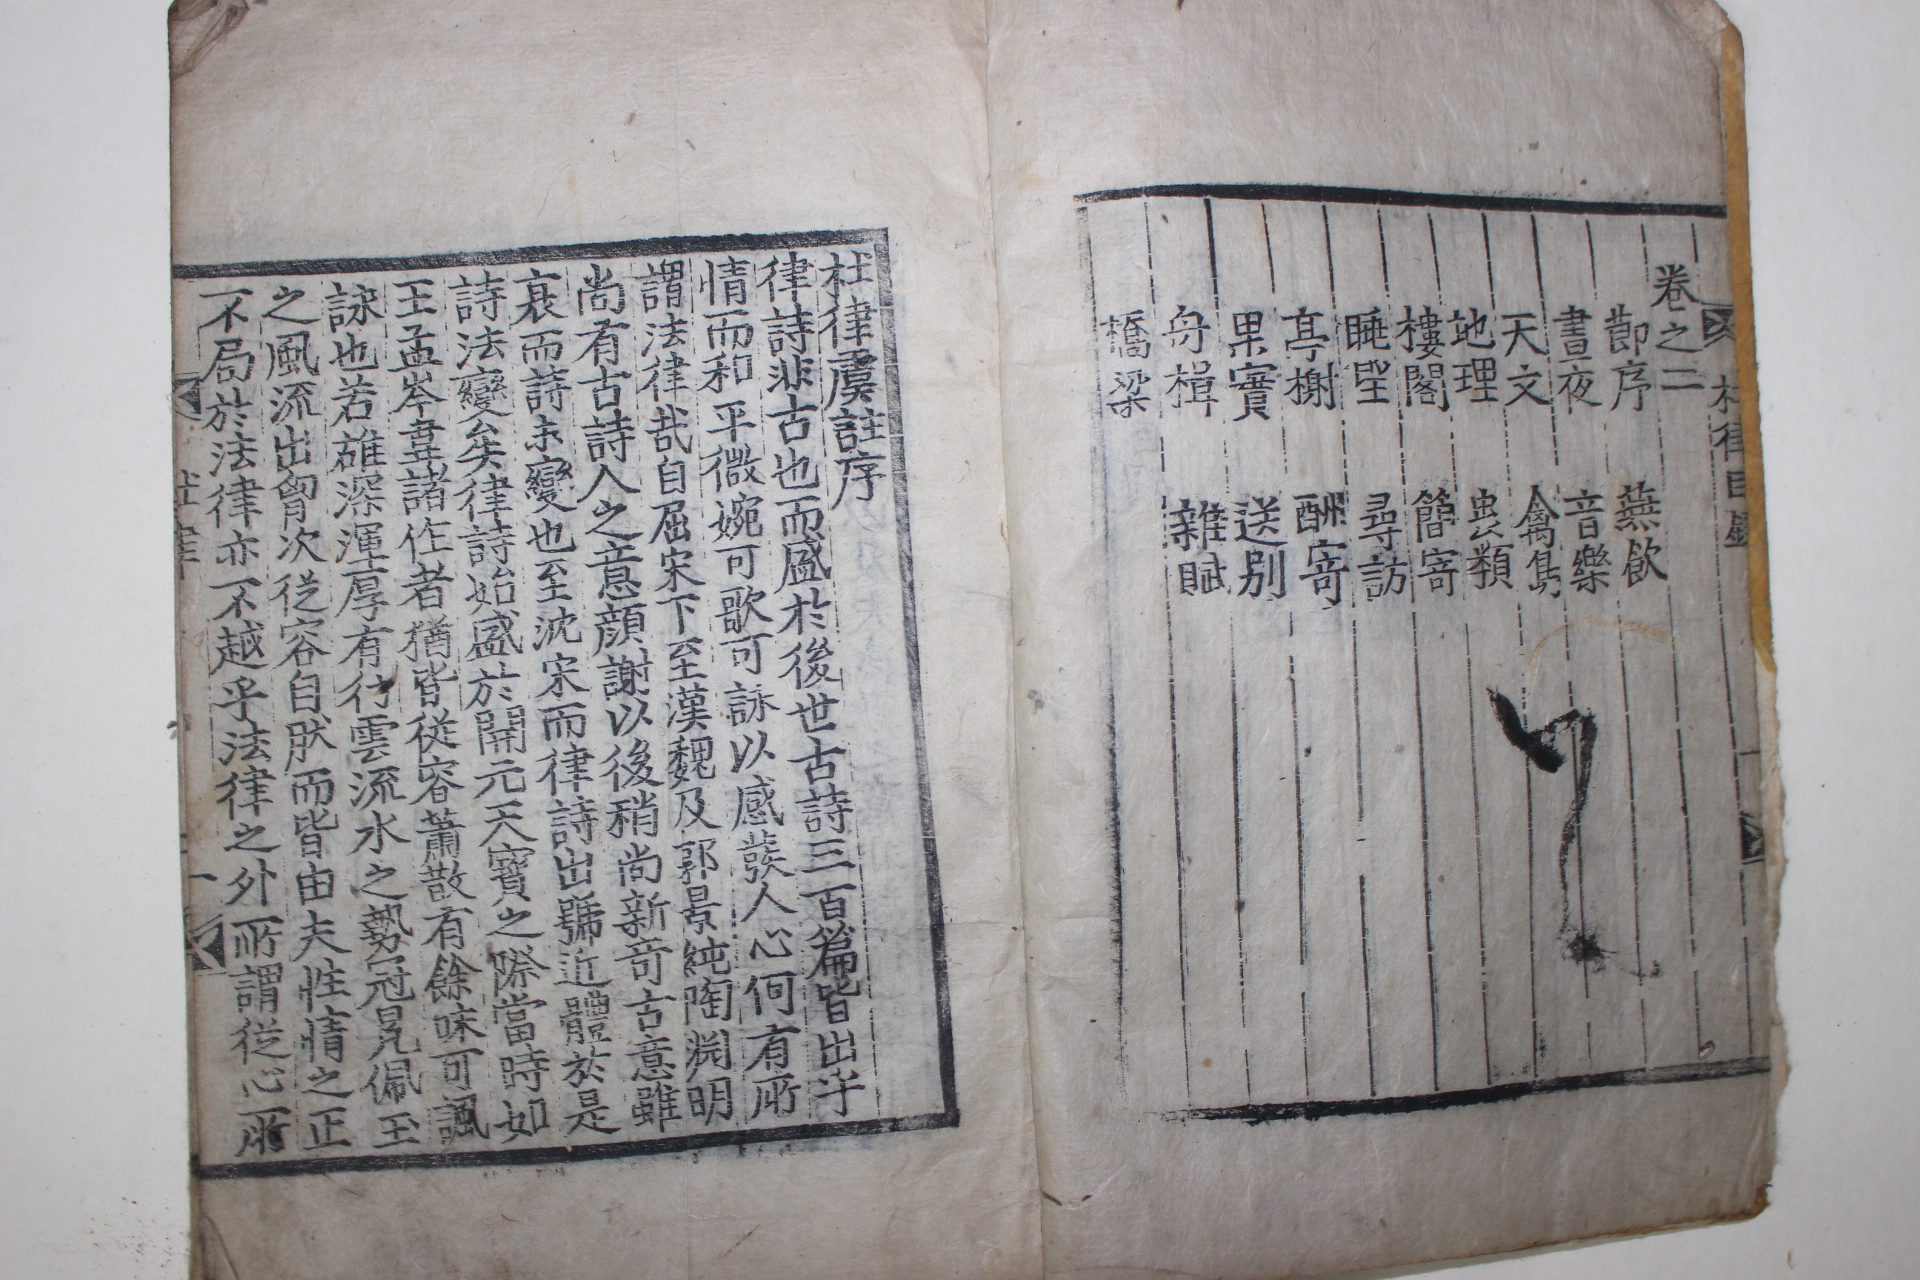 杜律目錄 一
卷之二
節序 燕飲
晝夜 音樂
天文 禽鳥
地理 虫類
樓閣 簡寄
眺望 尋訪
亭榭 酬寄
果實 送別
舟楫 雜賦
橋梁
杜律虞註序
律詩非古也而盛於後世古詩三百篇皆出乎
情而和平微婉可歌可詠以感發人心何有所
謂法律哉自屈宋下至漢魏及郭景純陶渊明
尚有古詩人之意顔謝以後稍尚新奇古意雖
衰而詩未變也至沈宋而律詩出號近體於是
詩法變矣律詩始盛於開元天寶之際當時如
王孟岑韋諸作者猶皆從容蕭散有餘味可諷
詠也若雄深渾厚有行雲流水之勢冠冕佩玉
之風流出胷次従容自然而皆由夫性情之正
不局於法律亦不越乎法律之外所謂従心所
杜律 一